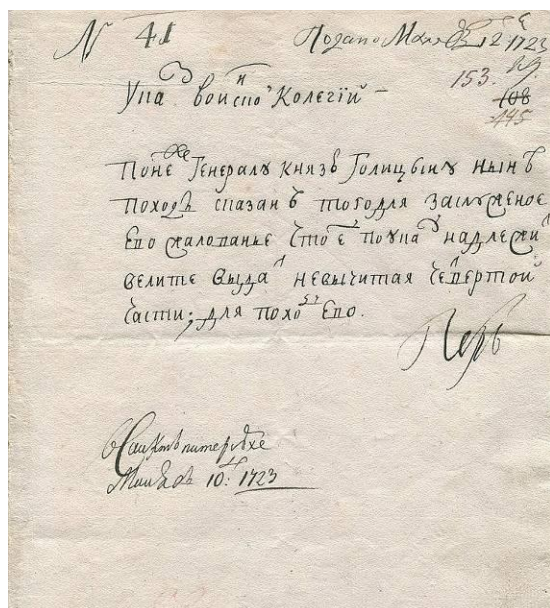 N 41 Подано Маиа 12 1723
153.
108
Указ воинской Колегїй
Понеже Генералу князь Голицыну нынѣ
походъ сказанъ того для заслуженое
Его жалованье что Е по указ надлежи
велите выдат невычитая четвертой
части; для походу Его.
Петръ
в Санктъпитербурхе
Маиа въ 10: 1723